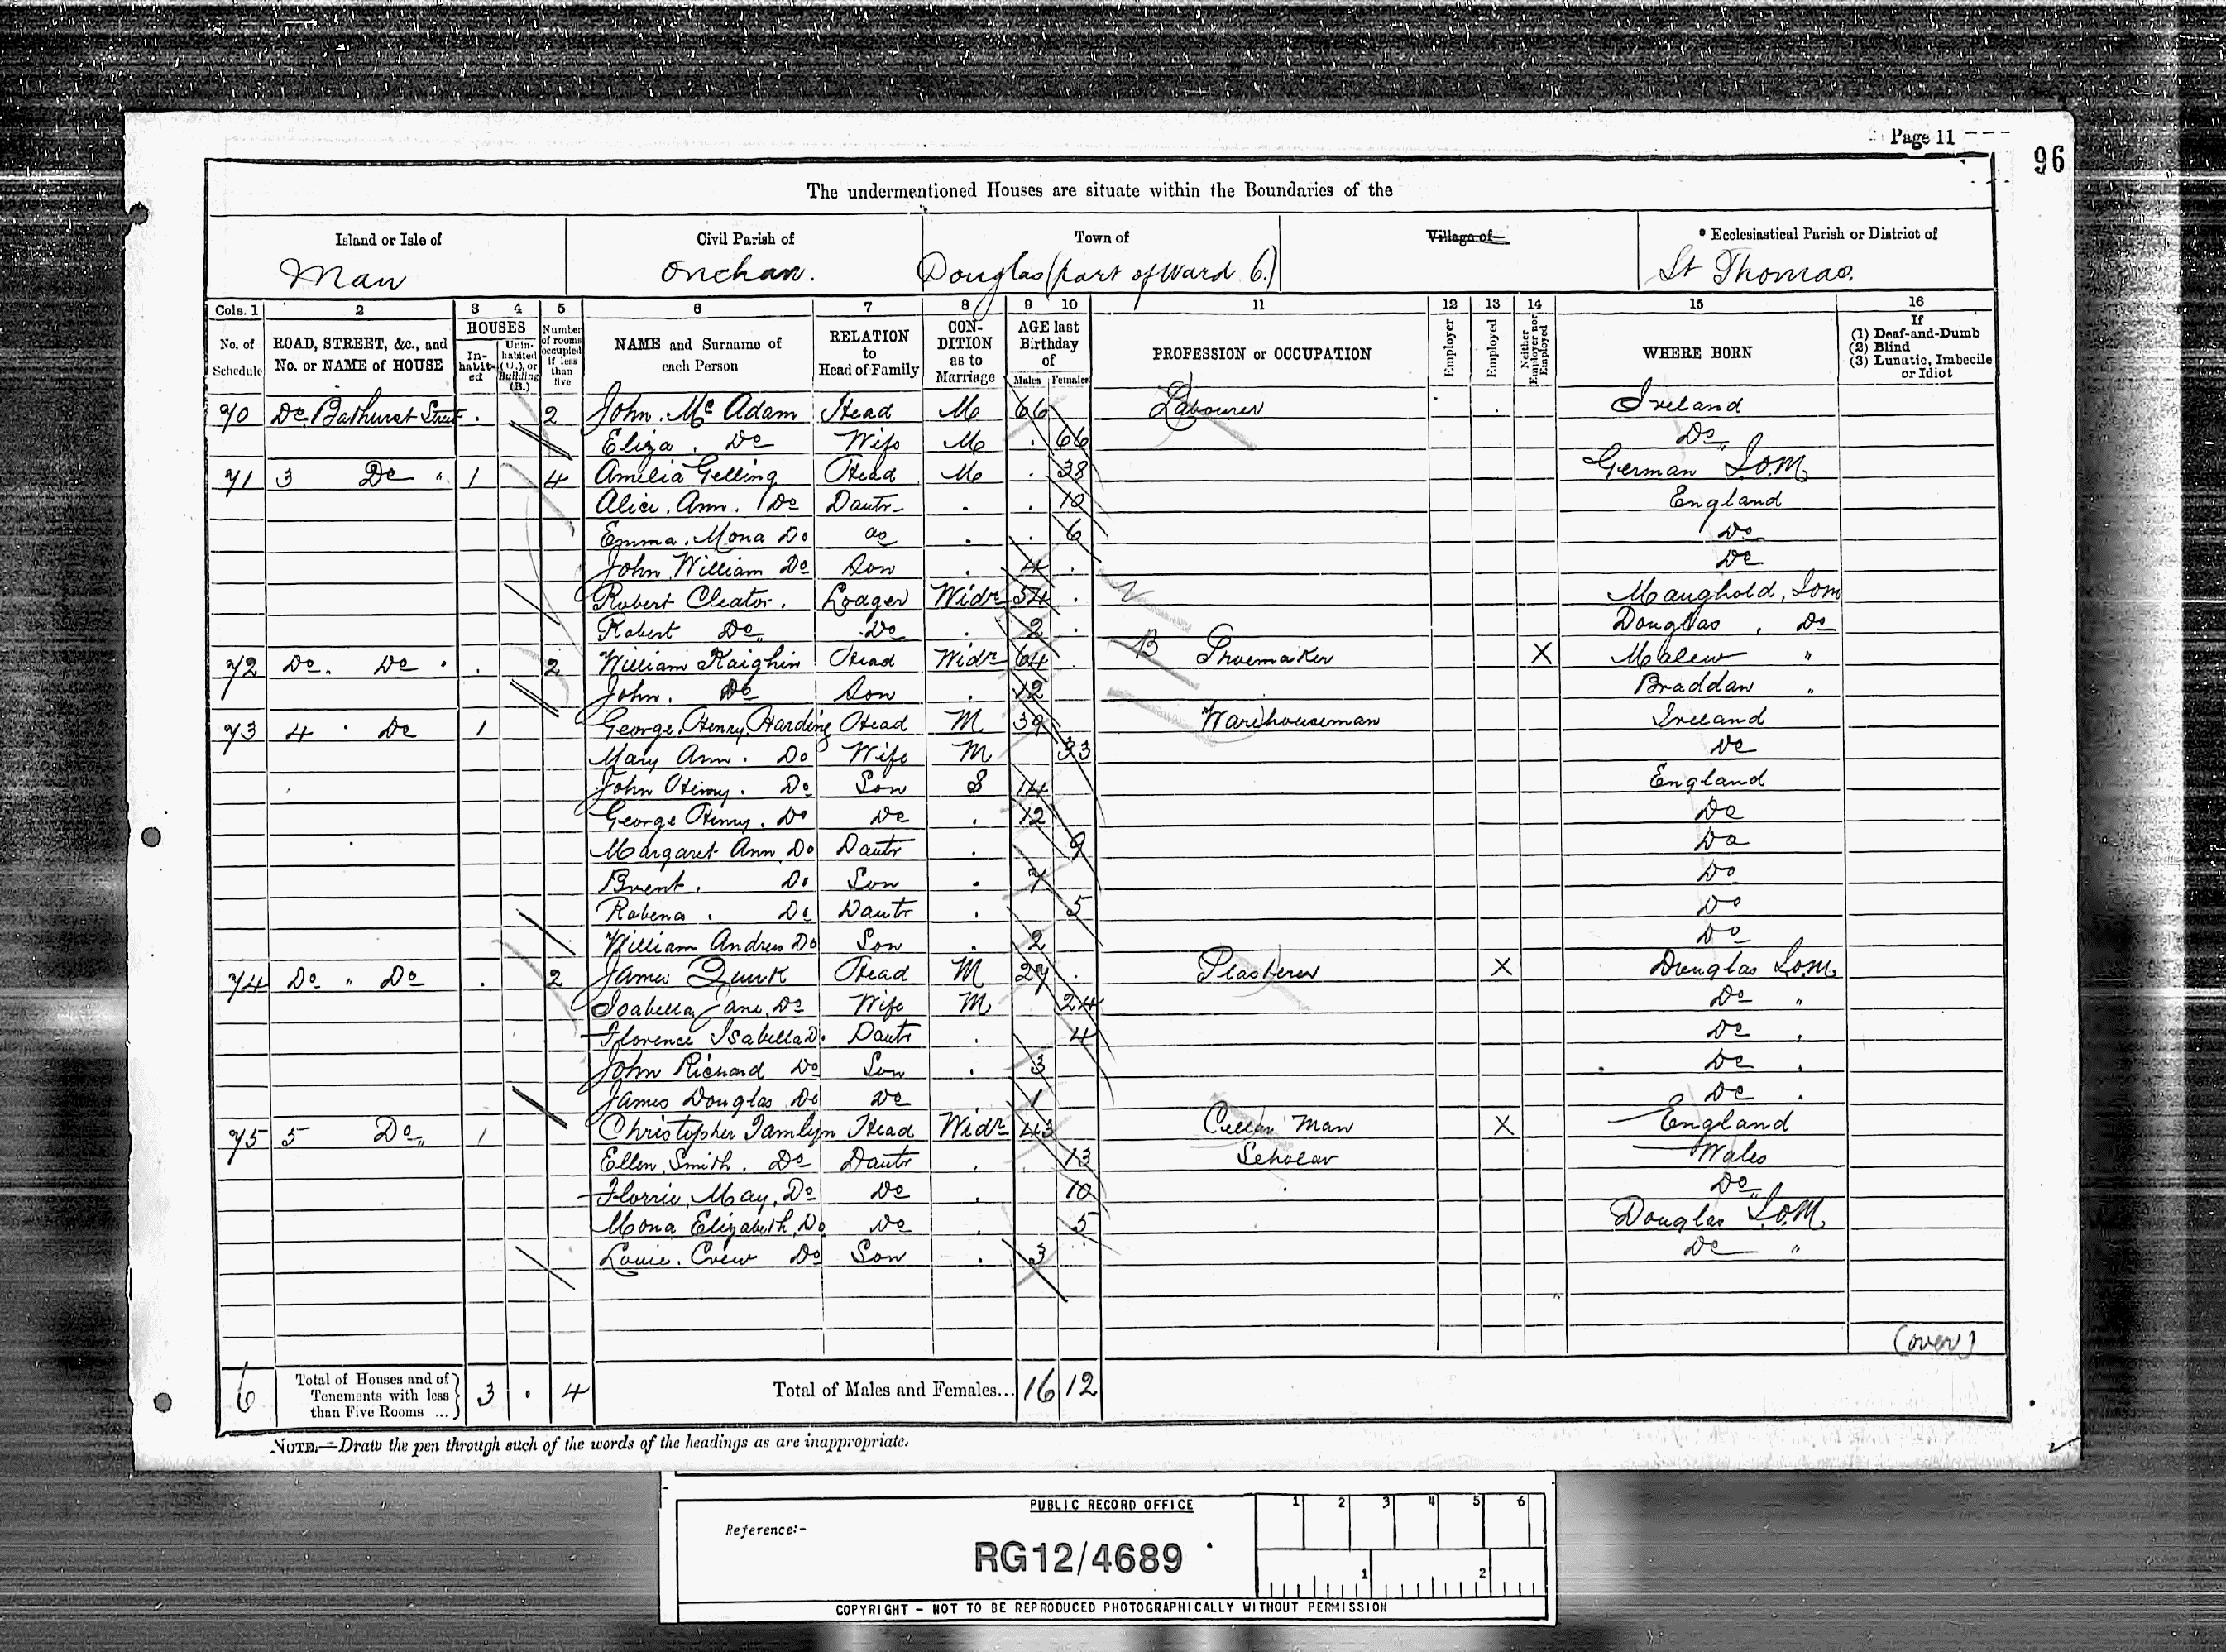 Page 11
96
The undermentioned Houses are situate within the Boundaries of the
Island or Isle of Civil Parish of Town of Village of Ecclesiastical Parish or District of
Man Onchan. Douglas (part of Ward 6.) St Thomas.
Cols. 1 2 3 4 5 6 7 8 9 10 11 12 13 14 15 16
No. of Schedule ROAD, STREET, &c., and No. or NAME of HOUSE HOUSES In-habit-ed Unin-habited (U.), or Building (B.) Number of rooms occupied if less than five NAME and Surname of each Person RELATION to Head of Family CON-DITION as to Marriage AGE last Birthday of Males Females PROFESSION or OCCUPATION Employer Employed Neither Employer nor Employed WHERE BORN If (1) Deaf-and-Dumb (2) Blind (3) Lunatic, Imbecile or Idiot
70 Do Bathurst Street . 2 John Mc Adam Head M 66 Labourer Ireland
Eliza. Do Wife M . 66 Do
71 3 Do " 1 4 Amelia Gelling Head M . 38 German I.O.M.
Alice Ann. Do Dautr . . 10 England
Emma. Mona Do do . . 6 Do
John William Do Son . 4 . Do
Robert Cleator. Lodger Widr 54 . Maughold, Iom
Robert Do Do . 2 . Douglas . Do
72 Do. Do . . 2 William Kaighin Head Widr 64 B Shoemaker X Malew "
John. Do Son . 12 Braddan "
73 4 . Do 1 George Henry Harding Head M 39 Warehouseman Ireland
Mary Ann. Do Wife M 33 Do
John Henry. Do Son S 14 England
George Henry. Do Do . 12 Do
Margaret Ann Do Dautr . 9 Do
Brent. Do Son . 7 Do
Rabena . Do Dautr . 5 Do
William Andrew Do Son . 2 Do
74 Do " Do . 2 James Quirk Head M 27 . Plasterer X Douglas I.O.M.
Isabella Jane, Do Wife M 24 Do "
Florence Isabella D. Dautr . 4 Do .
John Richard Do Son . 3 Do .
James Douglas Do Do 1 Do .
75 5 Do " 1 Christopher Tamlyn Head Widr 43 Cellar Man X England
Ellen Smith. Do Dautr . 13 Scholar Wales
Florrie May, Do Do . 10 . Do
Mona Elizabeth, Do Do . 5 Douglas I.O.M.
Louie. Crew Do Son . 3 Do "
(over)
6 Total of Houses and of Tenements with less than Five Rooms ... 3 . 4 Total of Males and Females... 16 12
NOTE.—Draw the pen through such of the words of the headings as are inappropriate.
PUBLIC RECORD OFFICE
1 2 3 4 5 6
Reference:-
RG12/4689
1 2
COPYRIGHT - NOT TO BE REPRODUCED PHOTOGRAPHICALLY WITHOUT PERMISSION